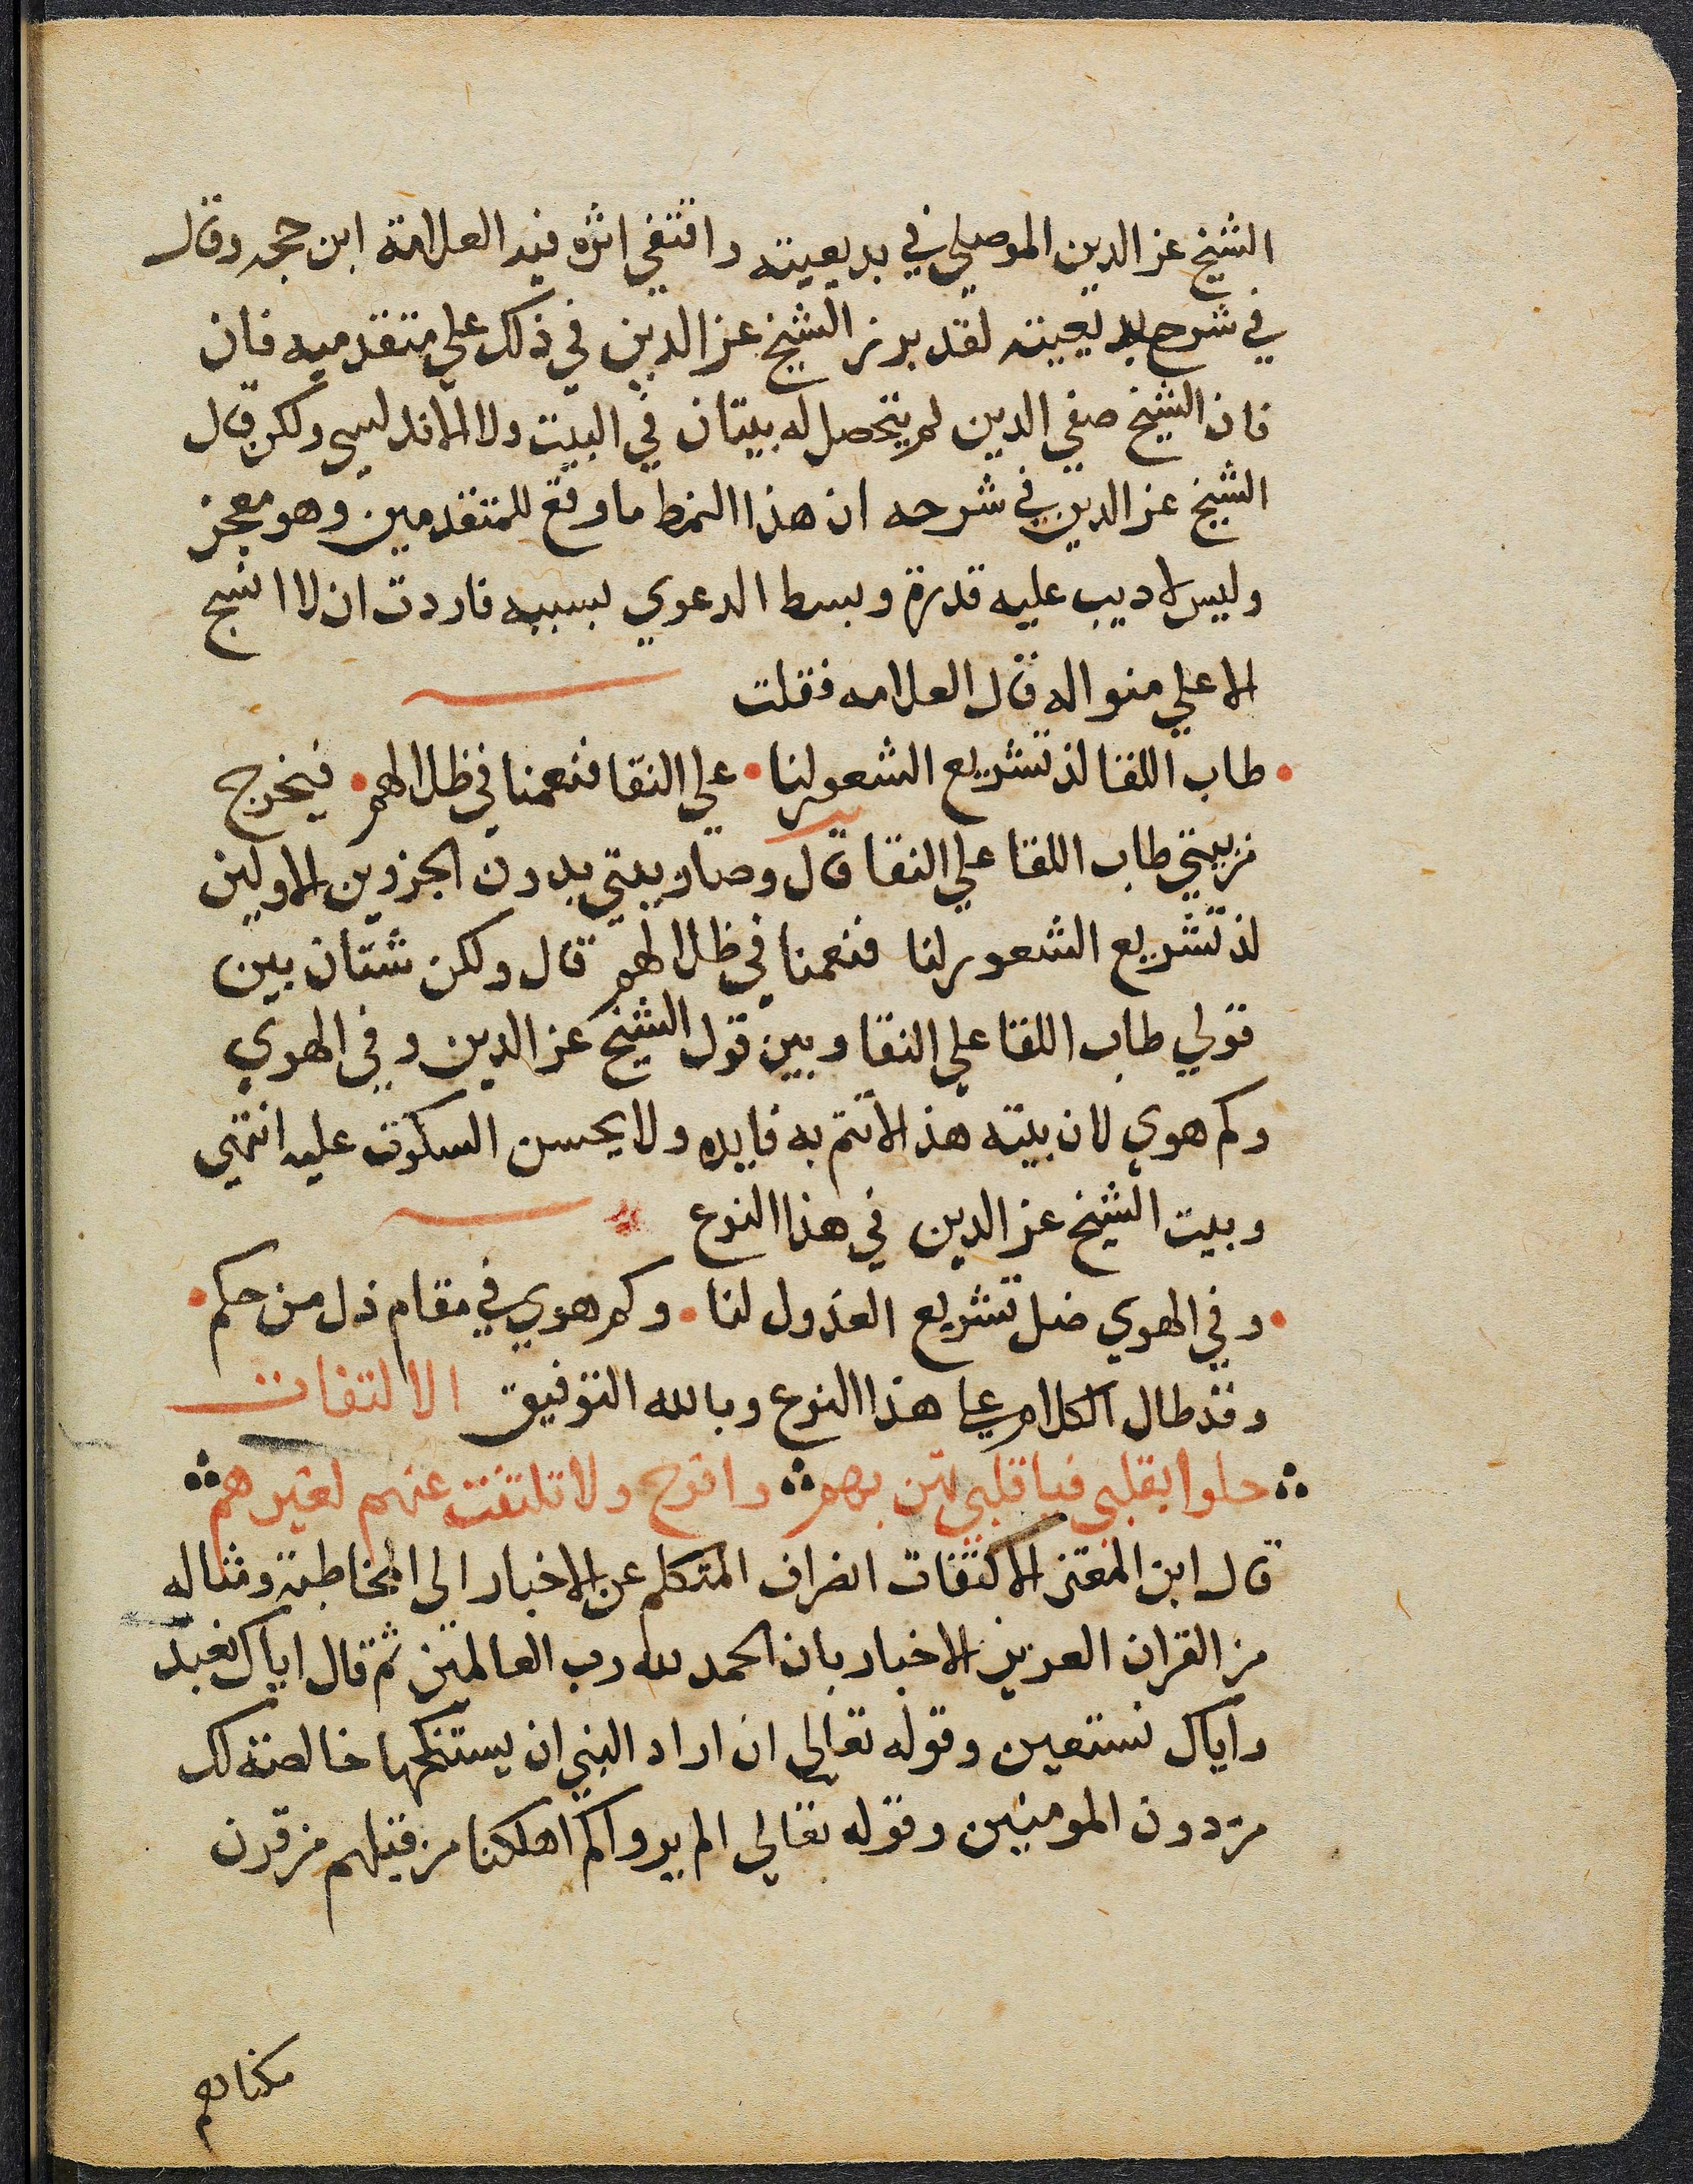 الشيخ عز الدين الموصلي في بديعيته واقتفي اثره فيه العلامة ابن حجه وقال
في شرح بديعيته لقد برز الشيخ عز الدين في ذلك علي متقدميه فان
فان الشيخ صفي الدين لم يتحصل له بيتان في البيت ولا الاندلسي ولكن قال
الشيخ عز الدين في شرحه ان هذا النمط ما وقع للمتقدمين وهو معجز
وليس لاديب عليه قدرة وبسط الدعوي بسببه فاردت ان لا انسج
الا علي منواله قال العلامه فقلت
طاب اللقا لذ تشريع الشعور لنا • علي النقا فنعمنا في ظلالهم • فيخرج
من بيتي طاب اللقا علي النقا قال وصار بيتي بدون الجزوين الاولين
لذ تشريع الشعور لنا فنعمنا في ظلالهم قال ولكن شتان بين
قولي طاب اللقا علي النقا وبين قول الشيخ عز الدين وفي الهوي
وكم هوي لان بيته هذا لا تتم به فايده ولا يحسن السكوت عليه انتهي
وبيت الشيخ عز الدين في هذا النوع
• وفي الهوي ضل تشريع العذول لنا • وكم هوي في مقام ذل من حكم •
وقد طال الكلام علي هذا النوع وبالله التوفيق الالتفات
حلوا بقلبي فيا قلبي تهن بهم وافرح ولا تلتفت عنهم لغيرهم
قال ابن المعتز الالتفات انصراف المتكلم عن الاخبار الي المخاطبة ومثاله
من القران العزيز الاخبار بان الحمد لله رب العالمين ثم قال اياك نعبد
واياك نستعين وقوله تعالي ان اراد النبي ان يستنكحها خالصة لك
من دون المومنين وقوله تعالي الم يروا كم اهلكنا من قبلهم من قرن
مكناهم